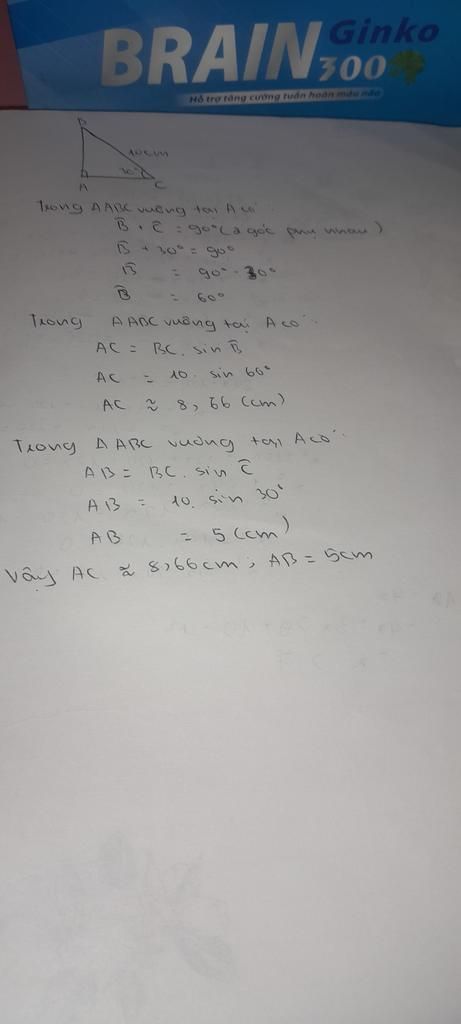 Ginko
BRAIN
300
Hỗ trợ tăng cường tuần hoàn máu não
B
10cm
30°
A
C
Trong ΔABC vuông tại A có:
B̂ + Ĉ = 90° (2 góc phụ nhau)
B̂ + 30° = 90°
B̂ = 90° - 30°
B̂ = 60°
Trong ΔABC vuông tại A có:
AC = BC. sin B̂
AC = 10. sin 60°
AC ≈ 8,66 (cm)
Trong ΔABC vuông tại A có:
AB = BC. sin Ĉ
AB = 10. sin 30°
AB = 5 (cm)
Vậy AC ≈ 8,66cm; AB = 5cm